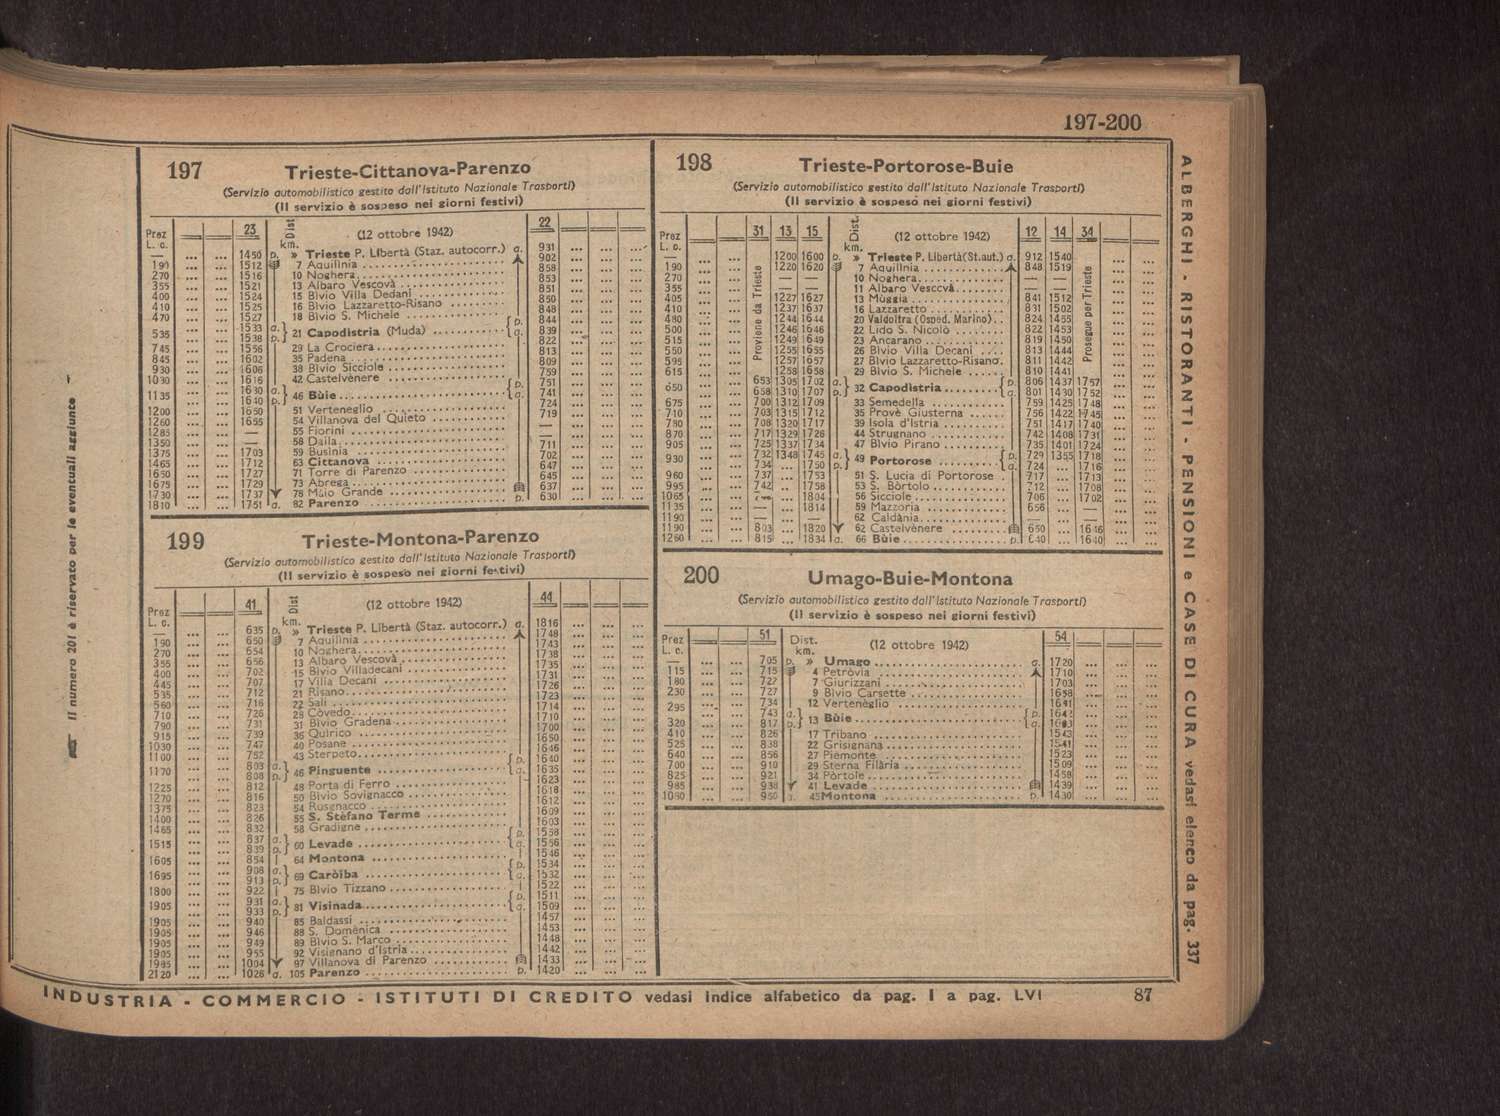 197-200
197 Trieste-Cittanova-Parenzo
(Servizio automobilistico gestito dall'Istituto Nazionale Trasporti)
(Il servizio è sospeso nei giorni festivi)
Prez L. c. 23 Dist km. (12 ottobre 1942) 22
— ... ... 1450 p. » Trieste P. Libertà (Staz. autocorr.) a. 931 ... ... ...
190 ... ... 1512 7 Aquilinia 902 ... ... ...
270 ... ... 1516 10 Noghera 858 ... ... ...
355 ... ... 1521 13 Albaro Vescovà 853 ... ... ...
400 ... ... 1524 15 Bivio Villa Dedani 851 ... ... ...
410 ... ... 1525 16 Bivio Lazzaretto-Risano 850 ... ... ...
470 ... ... 1527 18 Bivio S. Michele 848 ... ... ...
535 ... ... 1533 a. 21 Capodistria (Muda) p. 844 ... ... ...
... ... 1538 p. a. 839 ... ... ...
745 ... ... 1556 29 La Crociera 822 ... ... ...
845 ... ... 1602 35 Padena 813 ... ... ...
930 ... ... 1606 38 Bivio Sicciole 809 ... ... ...
1030 ... ... 1616 42 Castelvènere 759 ... ... ...
1135 ... ... 1630 a. 46 Bùie p. 751 ... ... ...
... ... 1640 p. a. 741 ... ... ...
1200 ... ... 1650 51 Verteneglio 724 ... ... ...
1260 ... ... 1655 54 Villanova del Quieto 719 ... ... ...
1285 ... ... — 55 Fiorini — ... ... ...
1350 ... ... — 58 Daila — ... ... ...
1375 ... ... 1703 59 Businia 711 ... ... ...
1465 ... ... 1712 63 Cittanova 702 ... ... ...
1650 ... ... 1727 71 Torre di Parenzo 647 ... ... ...
1675 ... ... 1729 73 Abrega 645 ... ... ...
1730 ... ... 1737 78 Máio Grande 637 ... ... ...
1810 ... ... 1751 a. 82 Parenzo p. 630 ... ... ...
198 Trieste-Portorose-Buie
(Servizio automobilistico gestito dall'Istituto Nazionale Trasporti)
(Il servizio è sospeso nei giorni festivi)
Prez L. c. 31 13 15 Dist. km. (12 ottobre 1942) 12 14 34
Proviene da Trieste
Prosegue per Trieste
— ... ... 1200 1600 p. » Trieste P. Libertà (St. aut.) a. 912 1540 ... ...
190 ... ... 1220 1620 7 Aquilinia 848 1519 ... ...
270 ... ... — — 10 Noghera — — ... ...
355 ... ... — — 11 Albaro Vescovà — — ... ...
405 ... ... 1227 1627 13 Múggia 841 1512 ... ...
410 ... ... 1237 1637 16 Lazzaretto 831 1502 ... ...
480 ... ... 1244 1644 20 Valdoltra (Osped. Marino) 824 1455 ... ...
500 ... ... 1246 1646 22 Lido S. Nicolò 822 1453 ... ...
515 ... ... 1249 1649 23 Ancarano 819 1450 ... ...
550 ... ... 1255 1655 26 Bivio Villa Decani 813 1444 ... ...
595 ... ... 1257 1657 27 Bivio Lazzaretto-Risano 811 1442 ... ...
615 ... ... 1258 1658 29 Bivio S. Michele 810 1441 ... ...
650 ... ... 653 1305 1702 a. 32 Capodistria p. 806 1437 1757 ... ...
... ... 658 1310 1707 p. a. 801 1430 1752 ... ...
675 ... ... 700 1312 1709 33 Semedella 759 1425 1748 ... ...
710 ... ... 703 1315 1712 35 Provè Giusterna 756 1422 1745 ... ...
780 ... ... 708 1320 1717 39 Isola d'Istria 751 1417 1740 ... ...
870 ... ... 717 1329 1726 44 Strugnano 742 1408 1731 ... ...
905 ... ... 725 1337 1734 47 Bivio Pirano 735 1401 1724 ... ...
930 ... ... 732 1348 1745 a. 49 Portorose p. 729 1355 1718 ... ...
... ... 734 ... 1750 p. a. 724 ... 1716 ... ...
960 ... ... 737 ... 1753 51 S. Lucia di Portorose 717 ... 1713 ... ...
995 ... ... 742 ... 1758 53 S. Bòrtolo 712 ... 1708 ... ...
1065 ... ... ... 1804 56 Sicciole 706 ... 1702 ... ...
1135 ... ... — ... 1814 59 Mazzoria 656 ... — ... ...
1190 ... ... — ... — 62 Caldània — ... — ... ...
1190 ... ... 803 ... 1820 62 Castelvènere 650 ... 1646 ... ...
1260 ... ... 815 ... 1834 a. 66 Bùie p. 640 ... 1640 ... ...
199 Trieste-Montona-Parenzo
(Servizio automobilistico gestito dall'Istituto Nazionale Trasporti)
(Il servizio è sospeso nei giorni festivi)
Prez L. c. 41 Dist km. (12 ottobre 1942) 44
— ... ... 635 p. » Trieste P. Libertà (Staz. autocorr.) a. 1816 ... ... ...
190 ... ... 650 7 Aquilinia 1748 ... ... ...
270 ... ... 654 10 Noghera 1743 ... ... ...
355 ... ... 656 13 Albaro Vescovà 1738 ... ... ...
400 ... ... 702 15 Bivio Villadecani 1735 ... ... ...
445 ... ... 707 17 Villa Decani 1731 ... ... ...
535 ... ... 712 21 Risano 1726 ... ... ...
560 ... ... 716 22 Salì 1723 ... ... ...
710 ... ... 726 28 Còvedo 1714 ... ... ...
790 ... ... 731 31 Bivio Gradena 1710 ... ... ...
915 ... ... 739 36 Quirico 1700 ... ... ...
1030 ... ... 747 40 Posane 1650 ... ... ...
1100 ... ... 752 43 Sterpeto 1646 ... ... ...
1170 ... ... 803 a. 46 Pinguente p. 1640 ... ... ...
... ... 808 p. a. 1635 ... ... ...
1225 ... ... 812 48 Porta di Ferro 1623 ... ... ...
1270 ... ... 816 50 Bivio Sovignacco 1618 ... ... ...
1375 ... ... 823 54 Rusgnacco 1612 ... ... ...
1400 ... ... 826 55 S. Stèfano Terme 1609 ... ... ...
1465 ... ... 832 58 Gradigne 1603 ... ... ...
1515 ... ... 837 a. 60 Levade p. 1558 ... ... ...
... ... 839 p. a. 1556 ... ... ...
1605 ... ... 854 64 Montona 1546 ... ... ...
1695 ... ... 908 a. 69 Caròiba p. 1534 ... ... ...
... ... 913 p. a. 1532 ... ... ...
1800 ... ... 922 75 Bivio Tizzano 1522 ... ... ...
1905 ... ... 931 a. 81 Visinada p. 1511 ... ... ...
... ... 933 p. a. 1509 ... ... ...
1905 ... ... 940 85 Baldassi 1457 ... ... ...
1905 ... ... 946 88 S. Domènica 1453 ... ... ...
1905 ... ... 949 89 Bivio S. Marco 1448 ... ... ...
1905 ... ... 955 92 Visignano d'Istria 1442 ... ... ...
1995 ... ... 1004 97 Villanova di Parenzo 1433 ... ... ...
2120 ... ... 1026 a. 105 Parenzo p. 1420 ... ... ...
200 Umago-Buie-Montona
(Servizio automobilistico gestito dall'Istituto Nazionale Trasporti)
(Il servizio è sospeso nei giorni festivi)
Prez L. c. 51 Dist. km. (12 ottobre 1942) 54
— ... ... 705 p. » Umago a. 1720 ... ... ...
115 ... ... 715 4 Petròvia 1710 ... ... ...
180 ... ... 722 7 Giurizzani 1703 ... ... ...
230 ... ... 727 9 Bivio Carsette 1658 ... ... ...
295 ... ... 734 12 Vertenèglio ... ... ...
320 ... ... 743 a. 13 Bùie p. ... ... ...
... ... 817 p. a. ... ... ...
410 ... ... 826 17 Tribano 1543 ... ... ...
525 ... ... 838 22 Grisignana 1541 ... ... ...
640 ... ... 856 27 Piemonte 1523 ... ... ...
700 ... ... 910 29 Sterna Filària 1509 ... ... ...
825 ... ... 921 34 Pòrtole 1458 ... ... ...
985 ... ... 938 41 Levade 1439 ... ... ...
1080 ... ... 950 a. 45 Montona p. 1430 ... ... ...
☛ Il numero 201 è riservato per le eventuali aggiunte
ALBERGHI - RISTORANTI - PENSIONI e CASE DI CURA vedasi elenco da pag. 337
INDUSTRIA - COMMERCIO - ISTITUTI DI CREDITO vedasi indice alfabetico da pag. I a pag. LVI 87